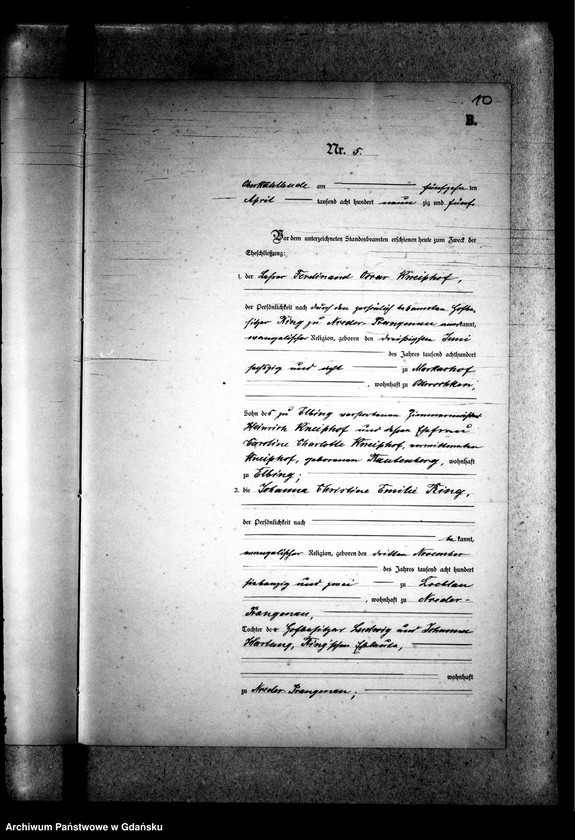 10
B.
Nr. 5.
am fünfzehn ten
April tausend acht hundert neun zig und fünf
Vor dem unterzeichneten Standesbeamten erschienen heute zum Zweck der
Eheschließung:
1. der Lehrer Ferdinand Oscar Kneiphof,
der Persönlichkeit nach durch den persönlich bekannten Hofbe-
sitzer King zu Nieder-Prangenau anerkannt,
evangelischer Religion, geboren den dreißigsten Juni
des Jahres tausend achthundert
sechszig und acht zu Markushof
, wohnhaft zu
Sohn des zu Elbing verstorbenen Zimmermeister
Heinrich Kneiphof und dessen Ehefrau
Caroline Charlotte Kneiphof, verwittweten
Kneiphof, geborenen Rautenberg, wohnhaft
zu Elbing;
2. die Johanna Christine Emilie King,
der Persönlichkeit nach
be kannt,
evangelischer Religion, geboren den dritten November
des Jahres tausend acht hundert
siebenzig und zwei zu Löblau
, wohnhaft zu Nieder-
Prangenau,
Tochter der Hofbesitzer Ludwig und Johanna
Hartung, King'schen Eheleute,
wohnhaft
zu Nieder-Prangenau;
Archiwum Państwowe w Gdańsku